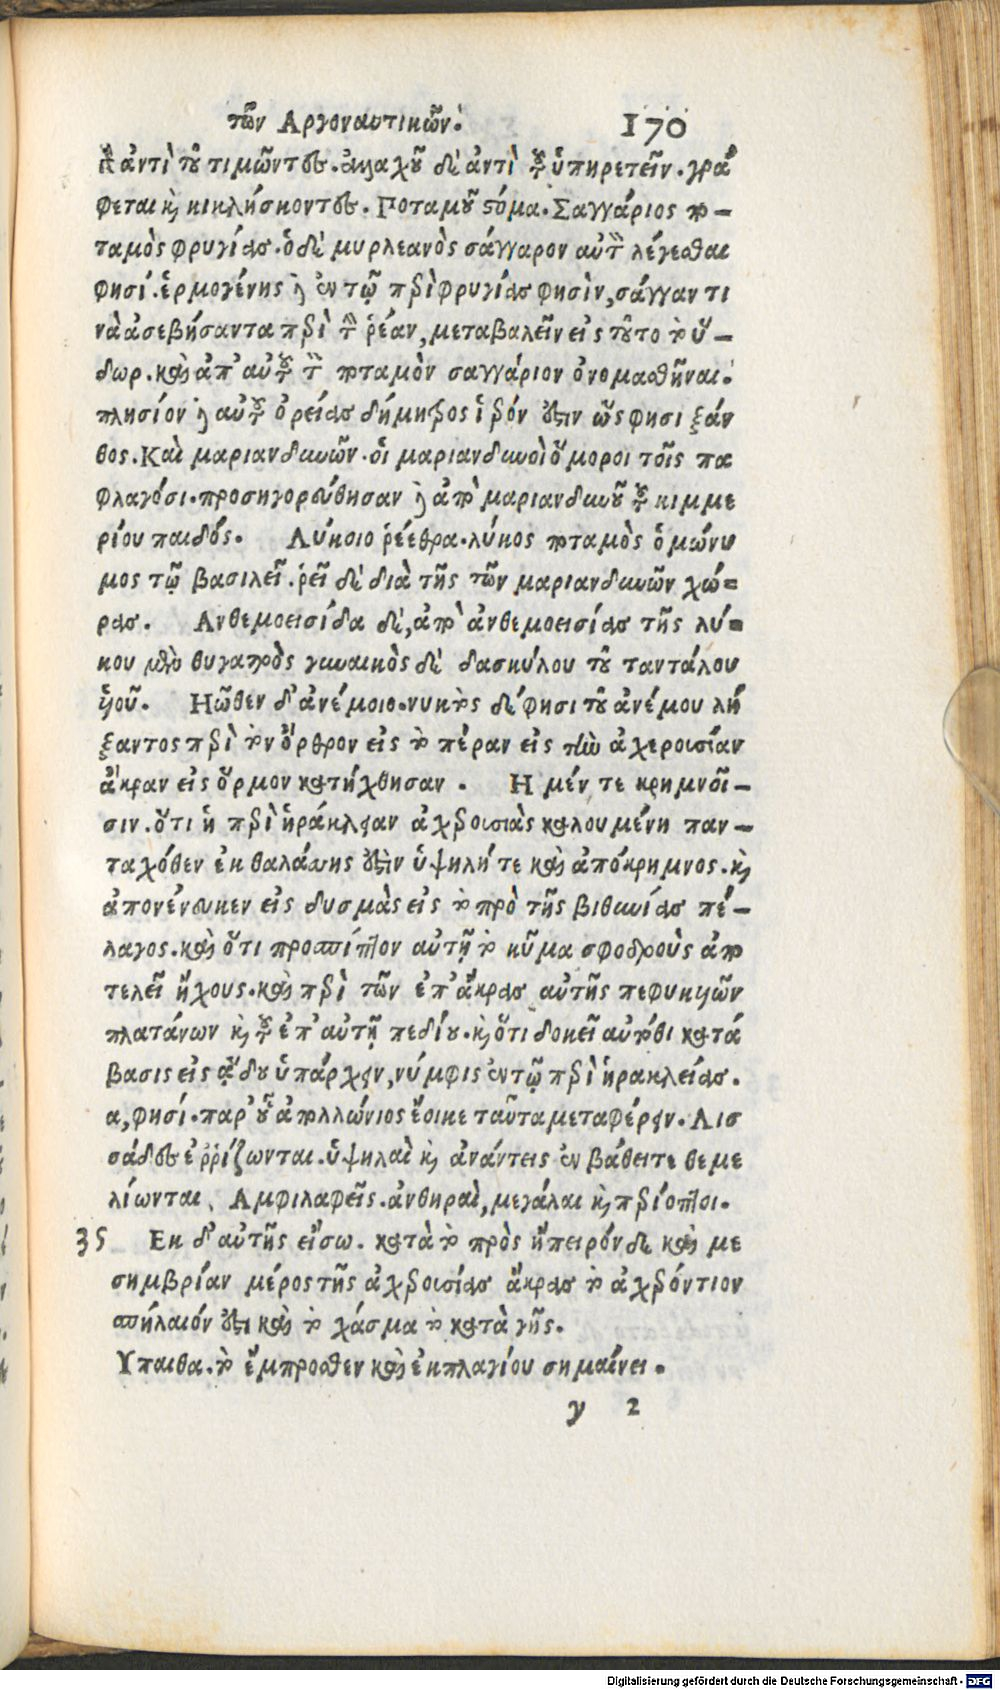 τῶν Αργοναυτικῶν. 170
ἀντὶ τοῦ τιμῶντες. ἀλαχοῦ δὲ ἀντὶ τοῦ ὑπηρετεῖν. γρά
φεται καὶ κικλήσκοντες. Ποταμοῦ στόμα. Σαγγάριος πο-
ταμὸς φρυγίας. ὁ δὲ μυρλεανὸς σάγγαρον αὐτὸν λέγεσθαι
φησί. ἑρμογένης δὲ ἐν τῷ περὶ φρυγίας φησὶν, σάγγαν τι
νὰ ἀσεβήσαντα περὶ τὴν ῥέαν, μεταβαλεῖν εἰς τοῦτο τὸ ὕ-
δωρ. καὶ ἀπ' αὐτοῦ τὸν ποταμὸν σαγγάριον ὀνομασθῆναι.
πλησίον δὲ αὐτοῦ ὀρείας δήμητρος ἱερόν ἐστιν ὥς φησι ξάν
θος. Καὶ μαριανδυνῶν. οἱ μαριανδυνοὶ ὅμοροι τοῖς πα
φλαγόσι. προσηγορεύθησαν δὲ ἀπὸ μαριανδυνοῦ τοῦ κιμμε
ρίου παιδός. Λύκοιο ῥέεθρα. λύκος ποταμὸς ὁμώνυ
μος τῷ βασιλεῖ. ῥεῖ δὲ διὰ τῆς τῶν μαριανδυνῶν χώ=
ρας. Ανθεμοεισίδα δὲ, ἀπὸ ἀνθεμοεισίας τῆς λύ=
κου μὲν θυγατρὸς γυναικὸς δὲ δασκύλου τοῦ ταντάλου
υἱοῦ. Ηῶθεν δ' ἀνέμοιο. νυκτὸς δέ φησι τοῦ ἀνέμου λή
ξαντος περὶ τὸν ὄρθρον εἰς τὸ πέραν εἰς τὴν ἀχερουσίαν
ἄκραν εἰς ὅρμον κατήχθησαν. Η μέν τε κρημνοῖ-
σιν. ὅτι ἡ περὶ ἡράκλειαν ἀχερουσιὰς καλουμένη παν-
ταχόθεν ἐκ θαλάσσης ἐστὶν ὑψηλή τε καὶ ἀπόκρημνος. καὶ
ἀπονένευκεν εἰς δυσμὰς εἰς τὸ πρὸ τῆς βιθυνίας πέ-
λαγος. καὶ ὅτι προσπίπτον αὐτῇ τὸ κῦμα σφοδροὺς ἀπο
τελεῖ ἤχους. καὶ περὶ τῶν ἐπ' ἄκρας αὐτῆς πεφυκυιῶν
πλατάνων καὶ τοῦ ἐπ' αὐτῇ πεδίου. καὶ ὅτι δοκεῖ αὐτόθι κατά
βασις εἰς ᾅδου ὑπάρχειν, νύμφις ἐν τῷ περὶ ἡρακλείας.
α, φησί. παρ' οὗ ἀπολλώνιος ἔοικε ταῦτα μεταφέρειν. Λισ
σάδες ἐρρίζωνται. ὑψηλαὶ καὶ ἀνάντεις ἐν βάθει τε θεμε
λίωνται. Αμφιλαφεῖς. ἀνθηραὶ, μεγάλαι καὶ περίοπτοι.
35 Εκ δ' αὐτῆς εἴσω. κατὰ τὸ πρὸς ἤπειρόν δὲ καὶ με
σημβρίαν μέρος τῆς ἀχερουσίας ἄκρας τὸ ἀχερόντιον
σπήλαιόν ἐστι καὶ τὸ χάσμα τὸ κατὰ γῆς.
Υπαιθα. τὸ ἔμπροσθεν καὶ ἐκπλαγίου σημαίνει.
y 2
Digitalisierung gefördert durch die Deutsche Forschungsgemeinschaft - DFG